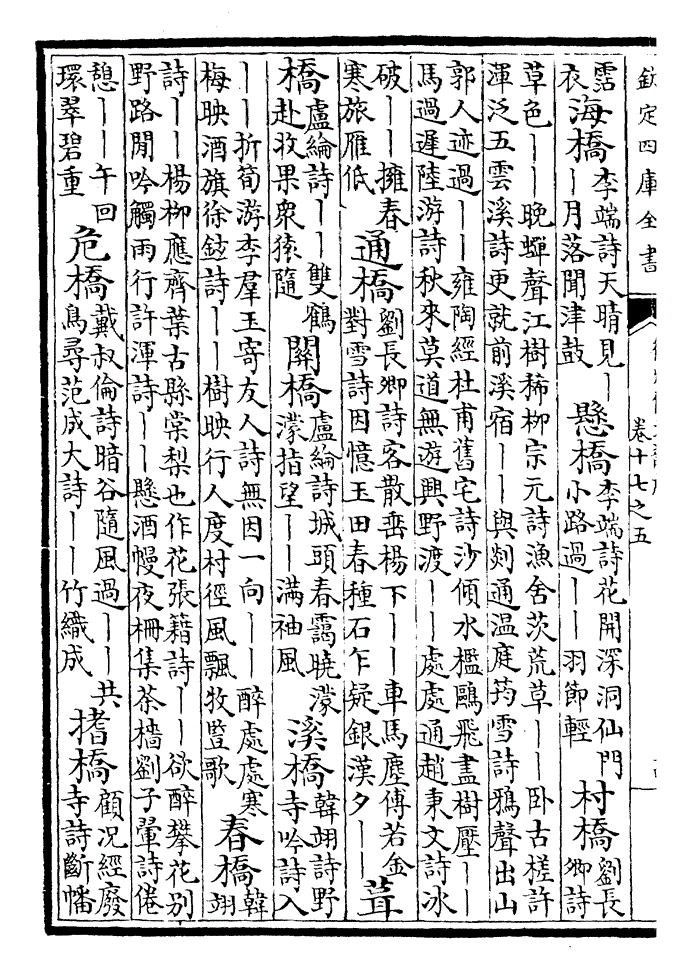 欽定四庫全書
卷十七之五
霑
衣
海橋
李端詩天晴見丨
丨月落聞津鼓
懸橋
李端詩花開深洞仙門
小路過丨丨羽節輕
村橋
劉長
卿詩
草色丨丨晚蟬聲江樹稀柳宗元詩漁舍茨荒草丨丨卧古槎許
渾泛五雲溪詩更就前溪宿丨丨與剡通溫庭筠雪詩鴉聲出山
郭人迹過丨丨雍陶經杜甫舊宅詩沙傾水檻鷗飛盡樹壓丨丨
馬過遲陸游詩秋來莫道無遊興野渡丨丨處處通趙秉文詩冰
破丨丨擁春
寒旅雁低
通橋
劉長卿詩客散垂楊下丨丨車馬塵傅若金
對雪詩因憶玉田春種石乍疑銀漢夕丨丨
葺
橋
盧綸詩丨丨雙鶴
赴收果衆猿隨
關橋
盧綸詩城頭春靄曉濛
濛指望丨丨滿袖風
溪橋
韓翃詩野
寺吟詩入
丨丨折筍游李羣玉寄友人詩無因一向丨丨醉處處寒
梅映酒旗徐鉉詩丨丨樹映行人度村徑風飄牧豎歌
春橋
韓
翃
詩丨丨楊柳應齊葉古縣棠梨也作花張籍詩丨丨欲醉攀花別
野路閒吟觸雨行許渾詩丨丨懸酒幔夜柵集茶檣劉子翬詩倦
憩丨丨午回
環翠碧重
危橋
戴叔倫詩暗谷隨風過丨丨共
鳥尋范成大詩丨丨竹織成
搘橋
顧況經廢
寺詩斷幡